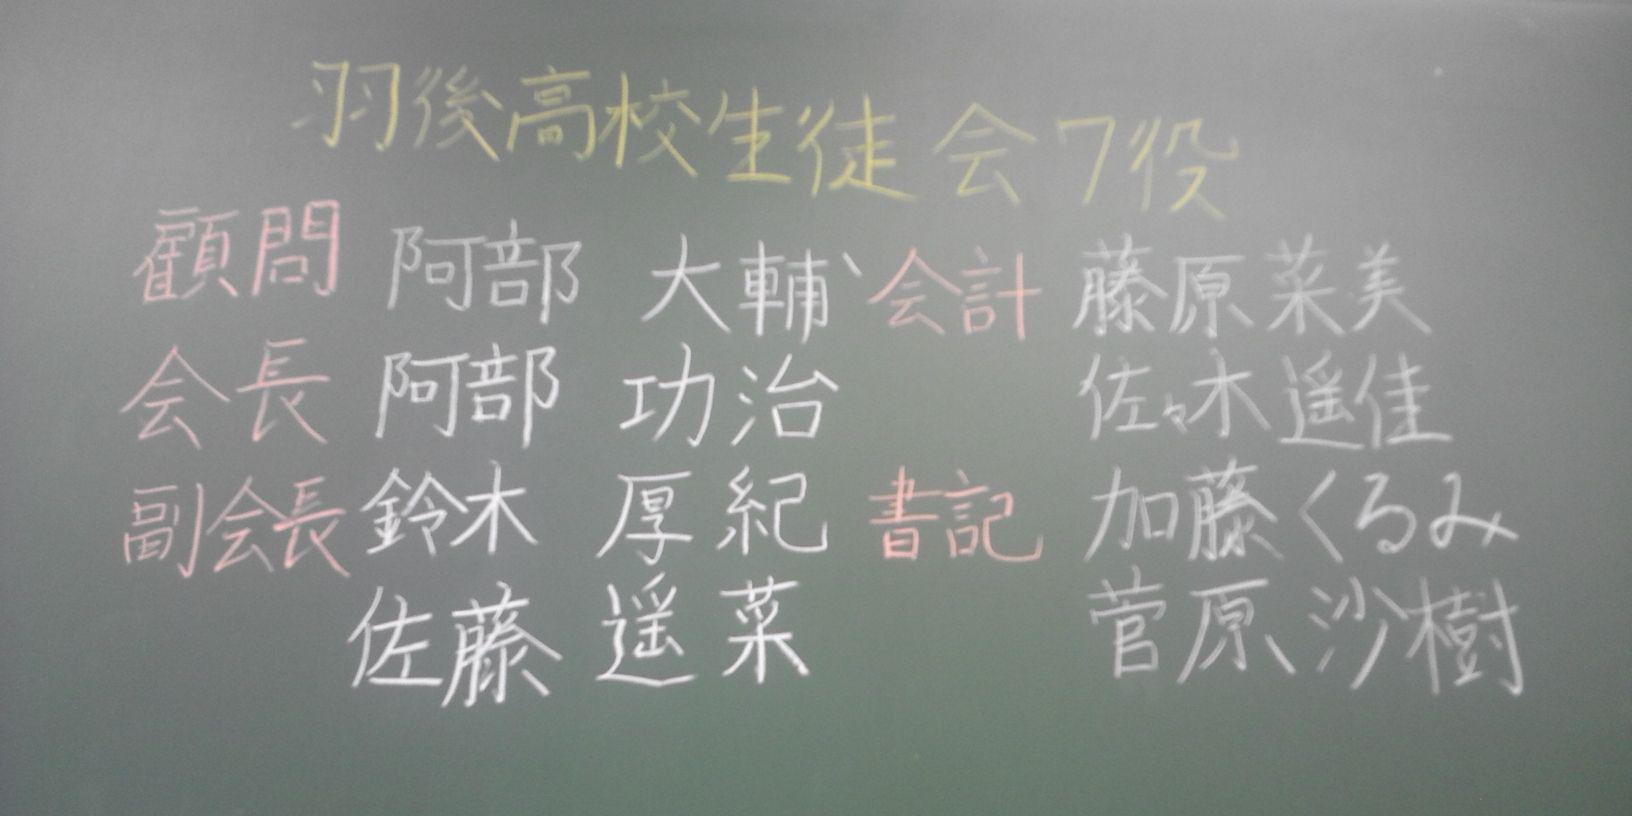 羽後高校生徒会7役
顧問 阿部 大輔
会長 阿部 功治
副会長 鈴木 厚紀
佐藤 遥菜
会計 藤原菜美
佐々木遥佳
書記 加藤くるみ
菅原沙樹